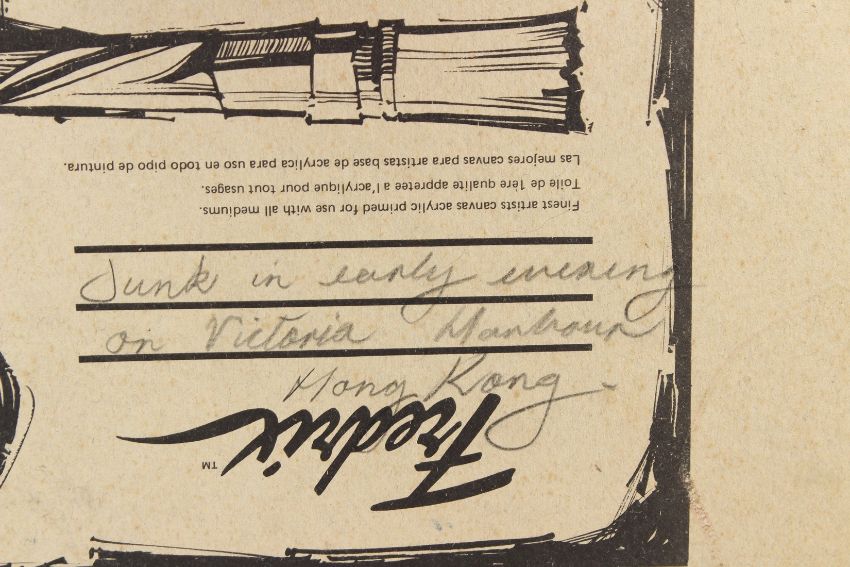 Las mejores canvas para artistas base de acrylica para uso en todo pipo de pintura.
Toile de 1ère qualite appretee a l'acrylique pour tout usages.
Finest artists canvas acrylic primed for use with all mediums.
Junk in early evening
on Victoria Harbour
Hong Kong.
Fredrix TM